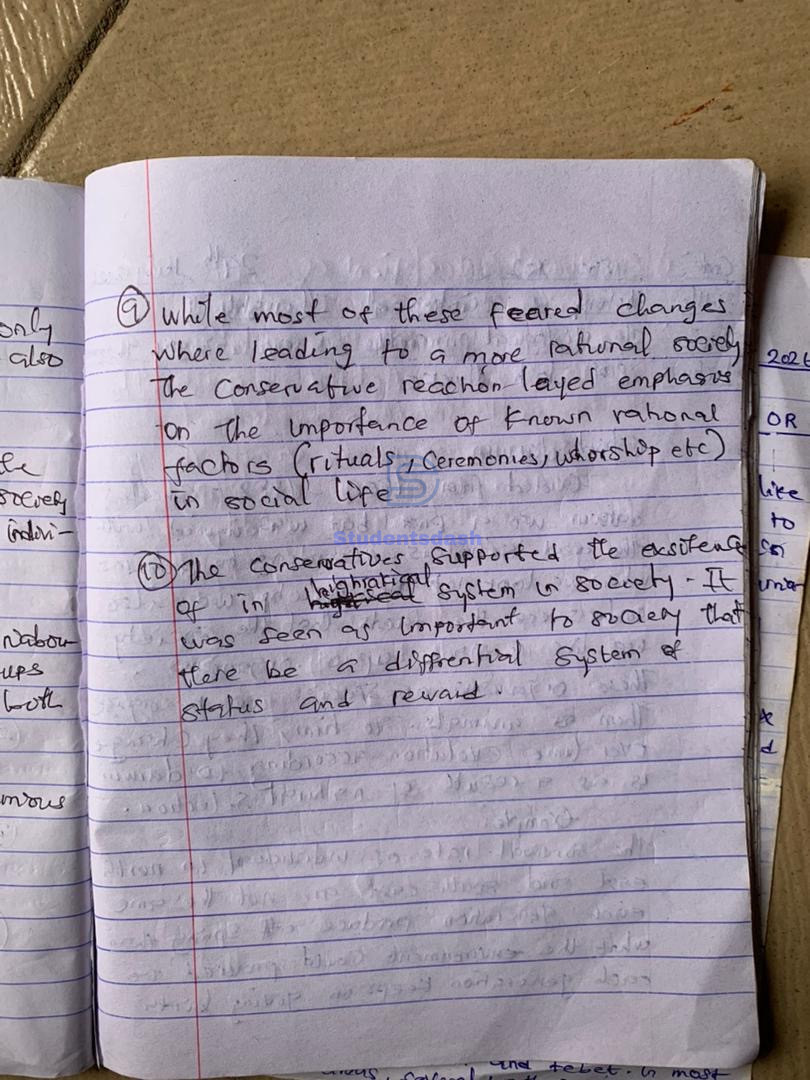 ⑨ While most of these feared changes
where leading to a more rational society
the conservative reaction layed emphasis
on the importance of known rational
factors (rituals, ceremonies, whorship etc)
in social life
Studentsdash
⑩ The conservatives supported the exsitence
of in heighratical system in society - It
was seen as important to society that
there be a diffrential system of
status and reward.
only
also
the
society
indivi-
ups
both
2026
OR
like
to
and
in most